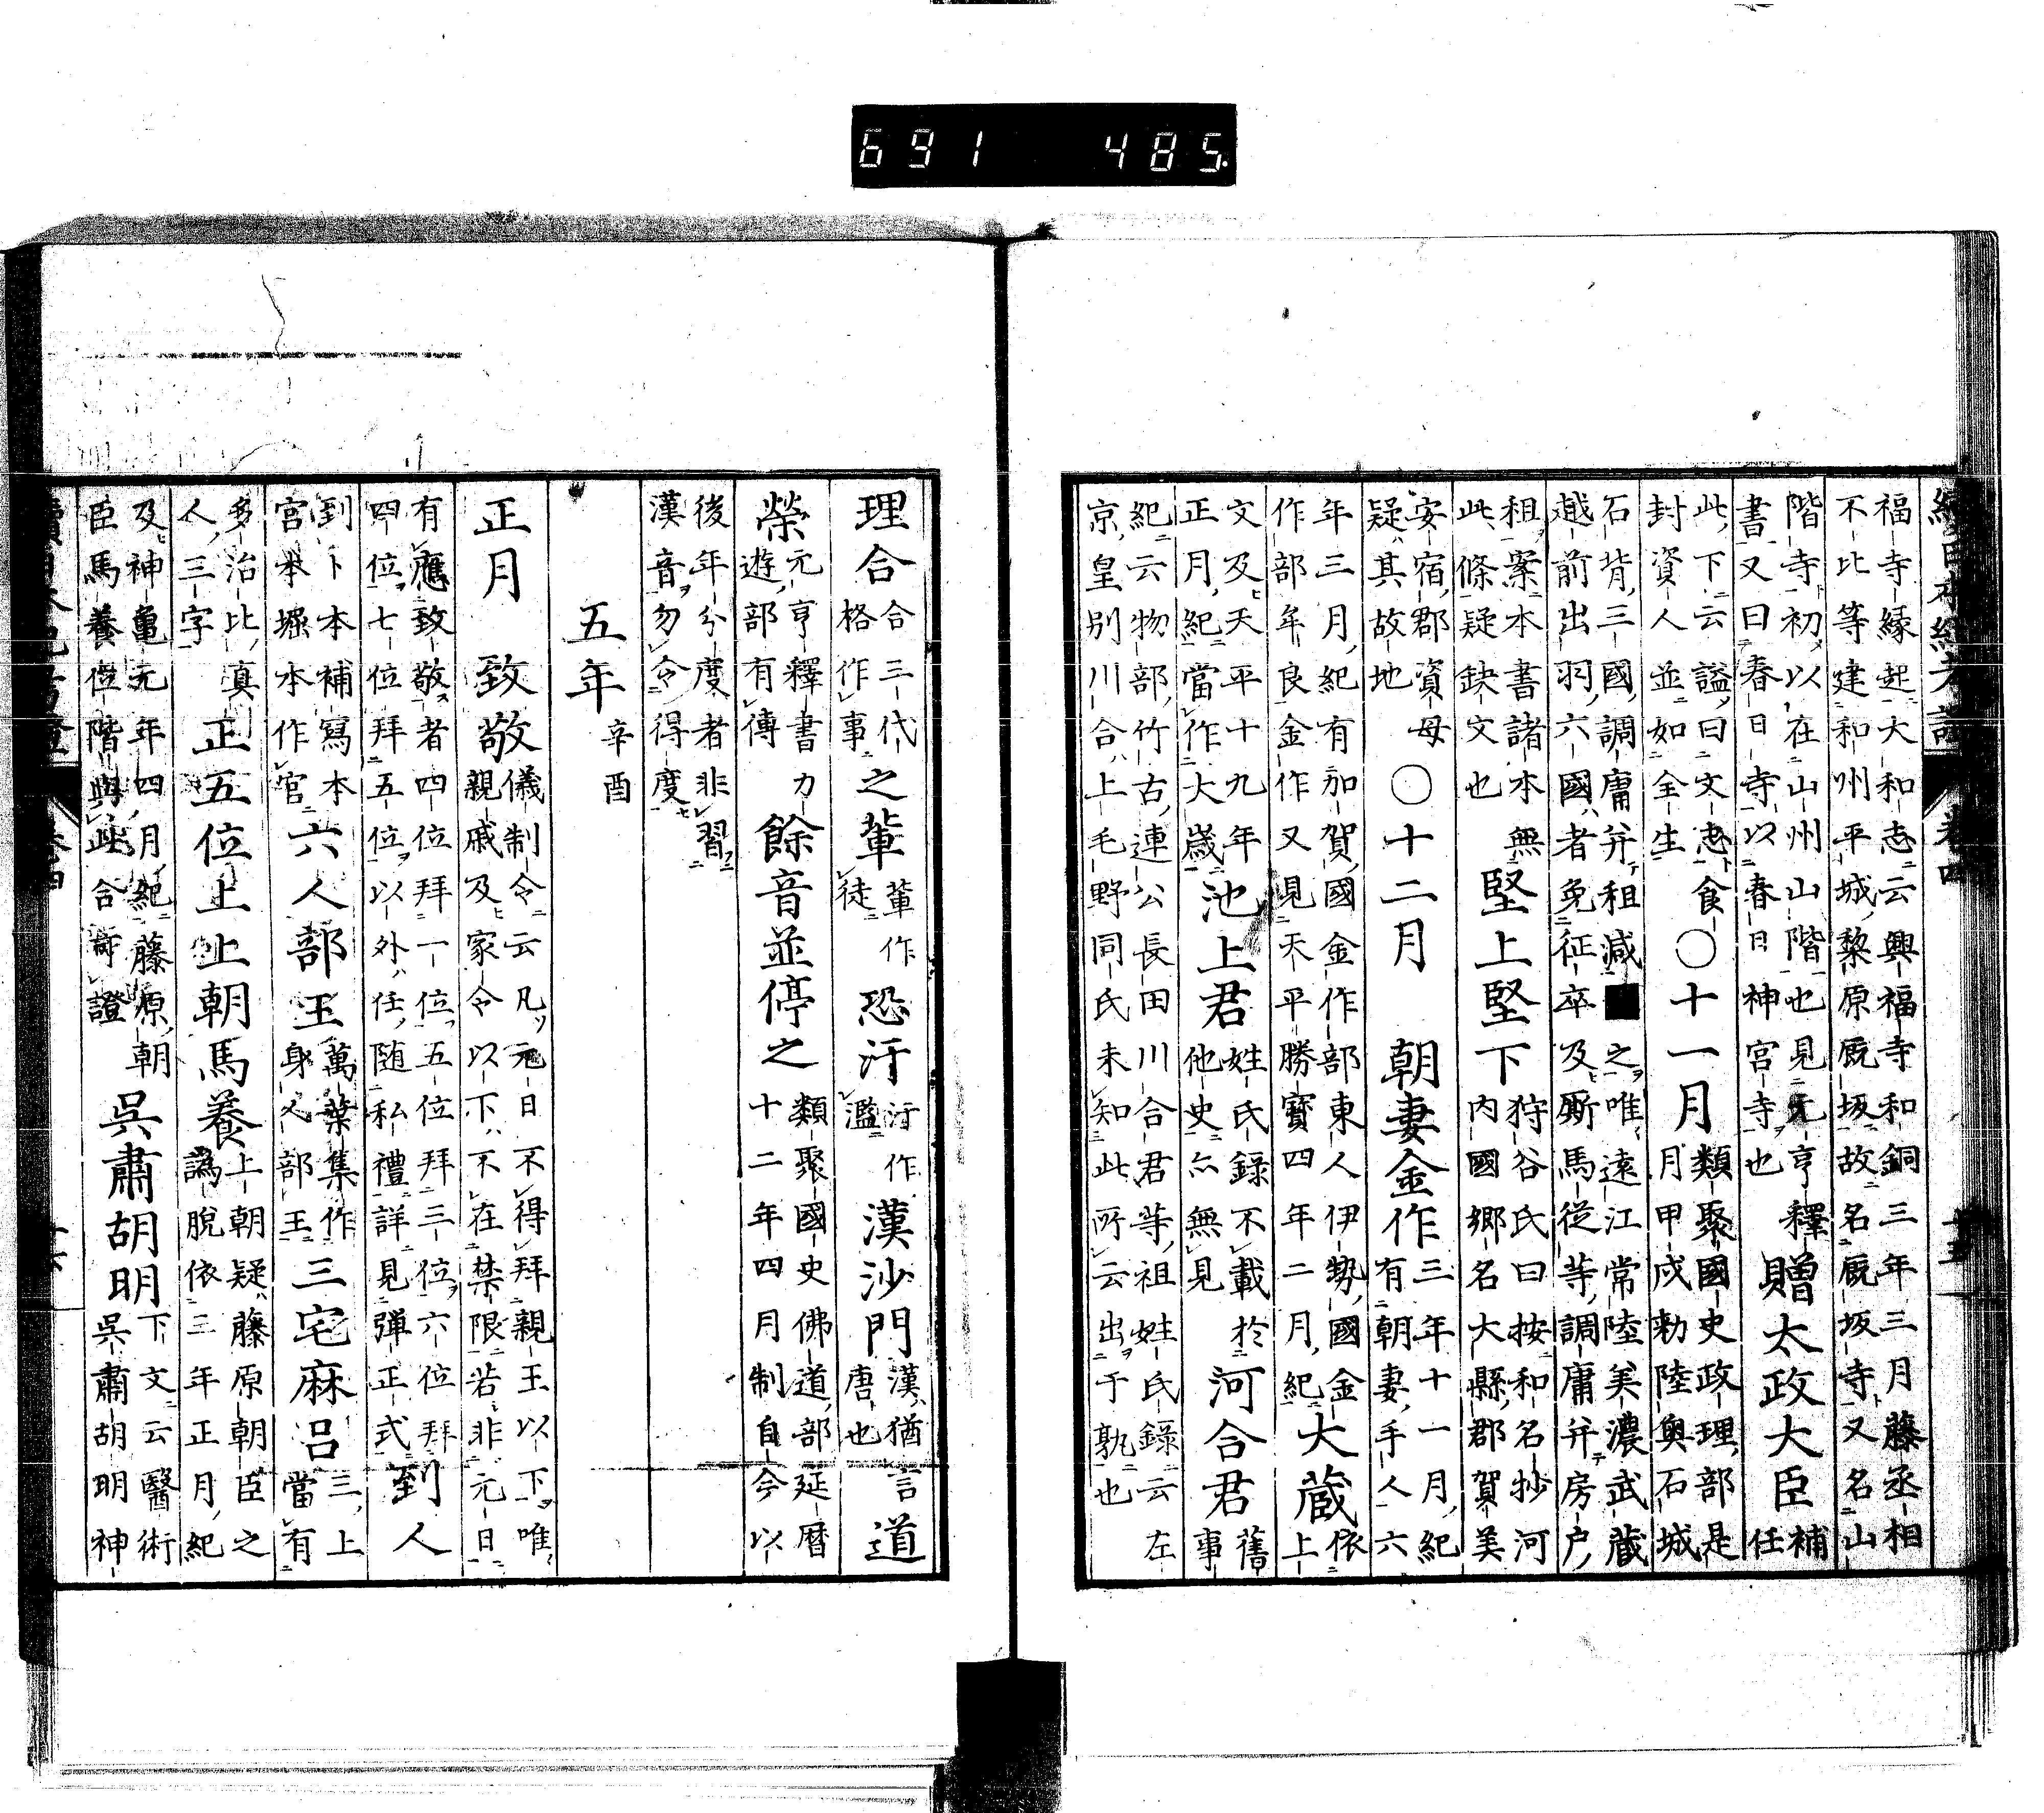 691 485
福寺縁起大和志云興福寺和銅三年三月藤丞相
不比等建和州平城黎原厩坂故名厩坂寺又名山
階寺初以在山州山階也見元亨釋
書又曰春日寺以春日神宮寺也
贈太政大臣
補
任
此下云諡曰文忠食
封資人並如全生
〇十一月
類聚國史政理部是
月甲戌勅陸奥石城
石背三國調庸并租減■之唯遠江常陸美濃武蔵
越前出羽六國者免征卒及厮馬從等調庸并房戸
租案本書諸本無
此條疑缺文也
堅上堅下
狩谷氏曰按和名抄河
内國郷名大縣郡賀美
安宿郡資母
疑其故地
〇十二月
朝妻金作
三年十一月紀
有朝妻手人六
年三月紀有加賀國金作部東人伊勢國金
作部牟良金作又見天平勝寶四年二月紀
大蔵
依
上
文及天平十九年
正月紀當作大歳
池上君
姓氏錄不載於
他史亦無見
河合君
舊
事
紀云物部竹古連公長田川合君等祖姓氏錄云左
京皇別川合上毛野同氏未知此所云出于孰也
理合
合三代
格作事
之輩
輩作
徒
恐汙
汙作
濫
漢沙門
漢猶言
唐也
道
榮
元亨釋書力
遊部有傳
餘音並停之
類聚國史佛道部延暦
十二年四月制自今以
後年分度者非習
漢音勿令得度
五年
辛酉
正月
致敬
儀制令云凡元日不得拜親王以下唯
親戚及家令以下不在禁限若非元日
有應致敬者四位拜一位五位拜三位六位拜
四位七位拜五位以外任随私禮詳見弾正式
到人
到卜本補寫本
宮本堀本作官
六人部王
萬葉集作
身人部王
三宅麻呂
三上
當有
多治比真
人三字
正五位上上朝馬養
上朝疑藤原朝臣之
譌脱依三年正月紀
及神亀元年四月紀藤原朝
臣馬養位階與此合可證
呉肅胡明
下文云醫術
呉肅胡明神